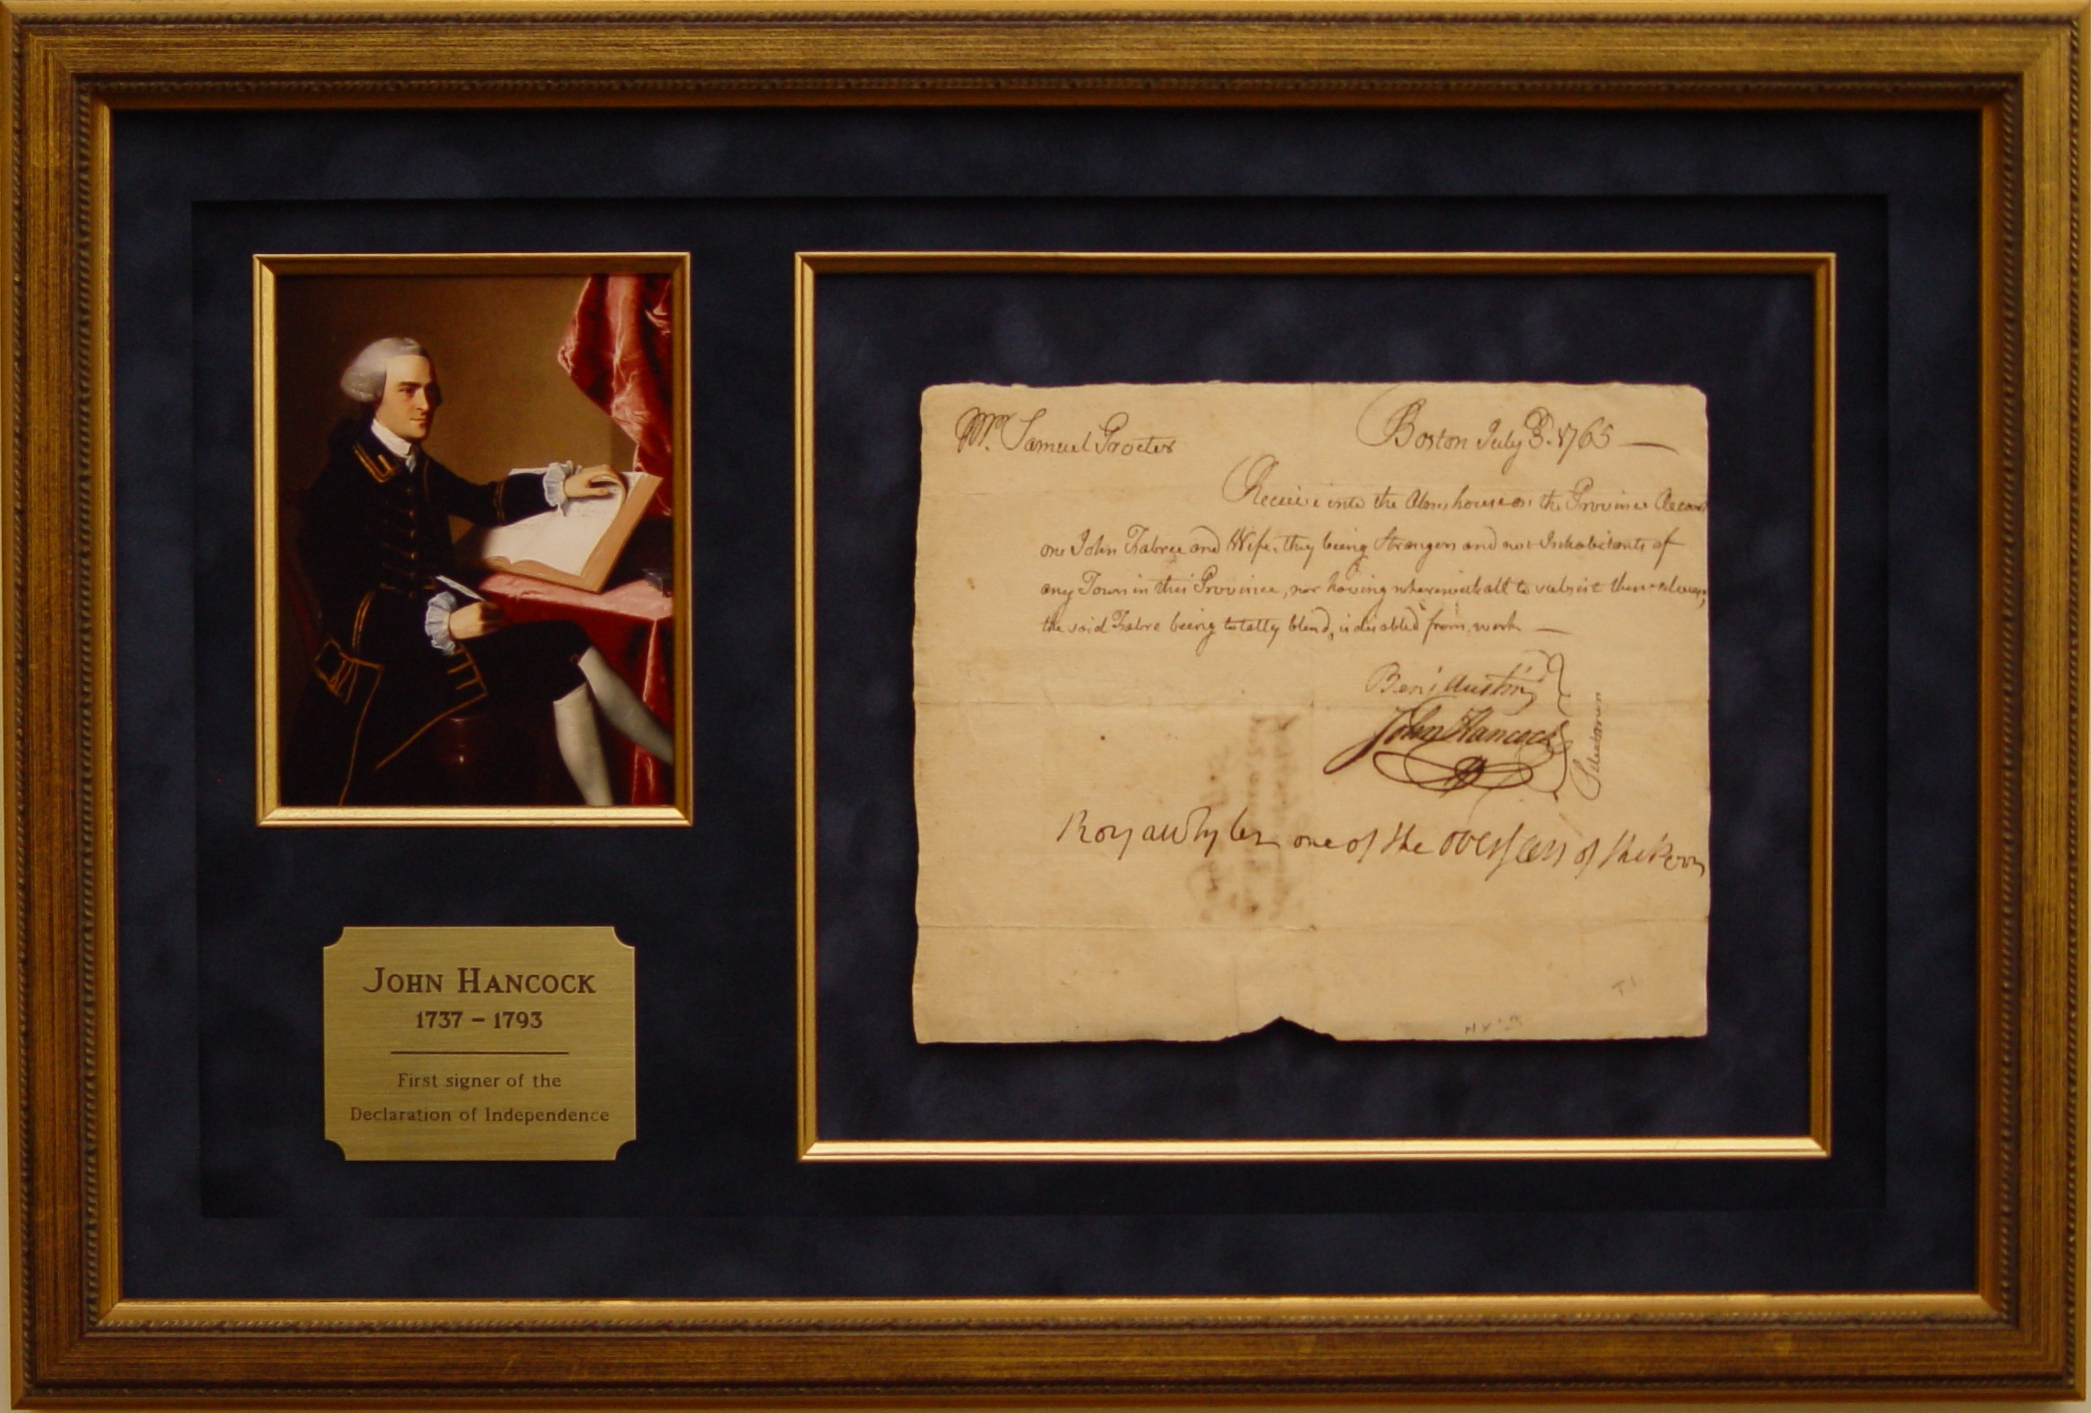 JOHN HANCOCK
1737 – 1793
First signer of the
Declaration of Independence
Mr. Samuel Procter
Boston July 3d. 1765
Receive into the Almshouse on the Province Account
one John Fabree and Wife, they being Strangers and not Inhabitants of
any Town in this Province, nor having wherewithall to subsist themselves,
the said Fabre being totally blind, is disabled from work
Benj Austin
John Hancock
Selectmen
Royall Tyler one of the overseers of the Poor